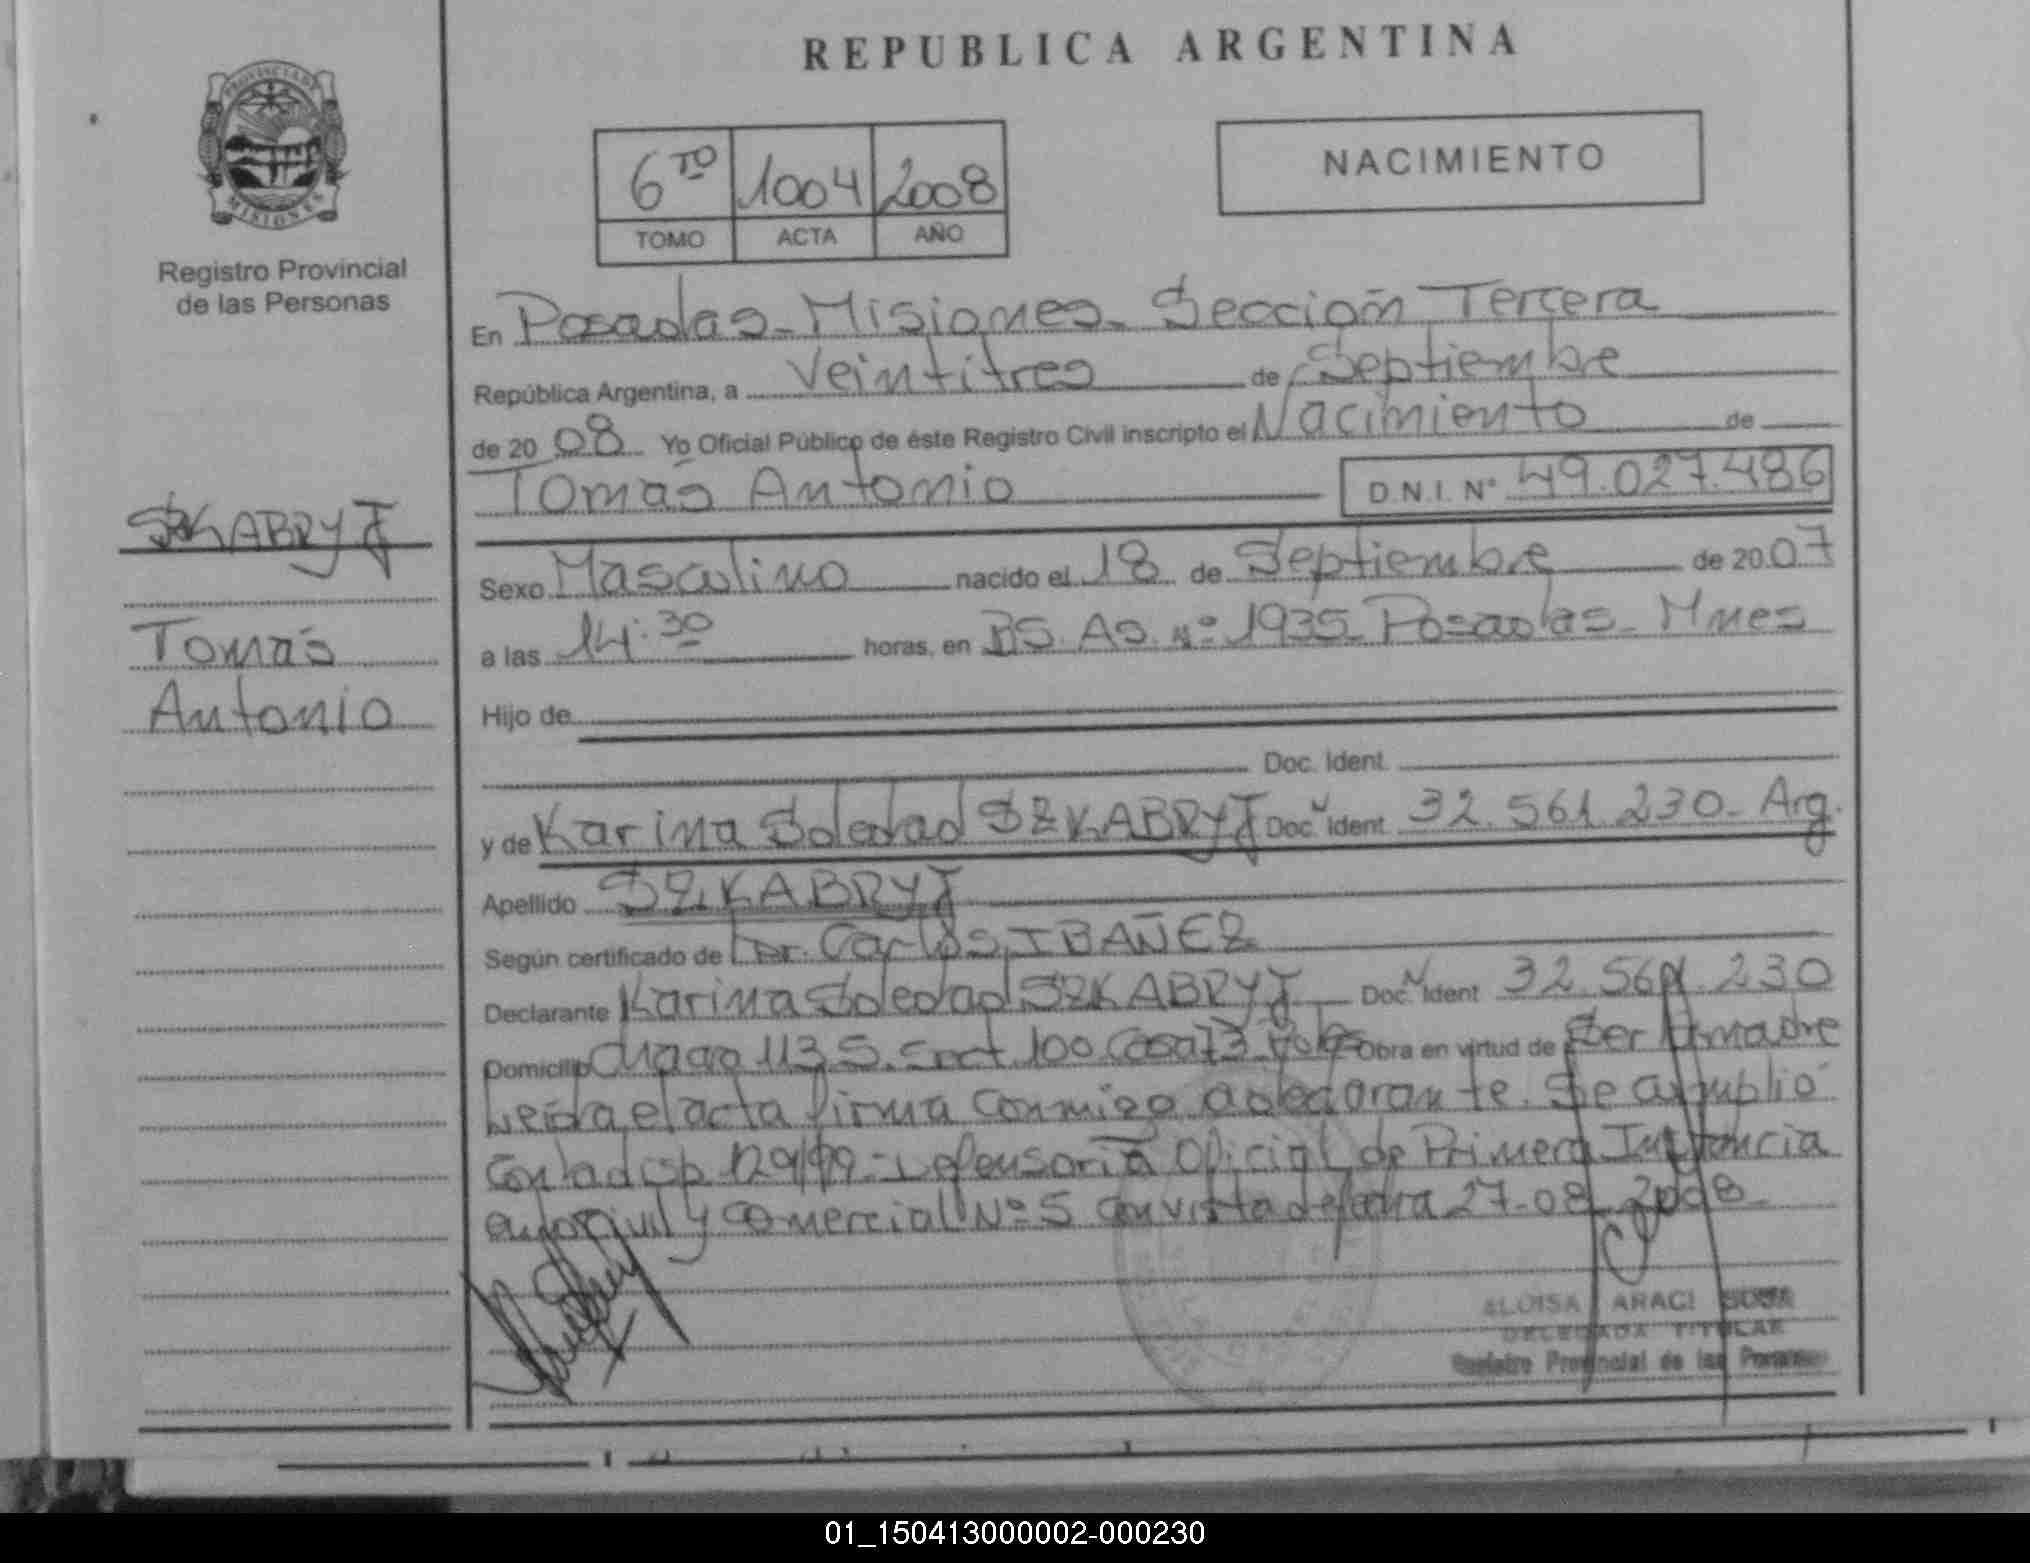 PROVINCIA DE
MISIONES
Registro Provincial
de las Personas
SZKABRYJ
Tomás
Antonio
REPUBLICA ARGENTINA
6TO 1004 2008
TOMO ACTA AÑO
NACIMIENTO
En Posadas - Misiones - Sección Tercera
República Argentina, a Veintitres de Septiembre
de 20 08 Yo Oficial Público de éste Registro Civil inscripto el Nacimiento de
Tomás Antonio D.N.I. N° 49.027.486
Sexo Masculino nacido el 18 de Septiembre de 20 07
a las 14:30 horas, en BS. AS. Nº 1935 - Posadas - Mnes
Hijo de
Doc. Ident.
y de Karina Soledad SZKABRYJ Doc. Ident 32.561.230 - Arg.
Apellido SZKABRYJ
Según certificado de Dr. Carlos IBAÑEZ
Declarante Karina Soledad SZKABRYJ Doc. Ident 32.561.230
Domicilio Chacra 113 S. 100 Casa 73 Obra en virtud de Ser madre
Leida el acta firma conmigo declarante. Se cumplió
con la disp. 129/99 - Defensoria Oficial de Primera Instancia
Civil y Comercial Nº 5 con vista de fecha 27-08-2008 -
ARACI SOSA
DELEGADA TITULAR
Registro Provincial de las Personas
01_150413000002-000230